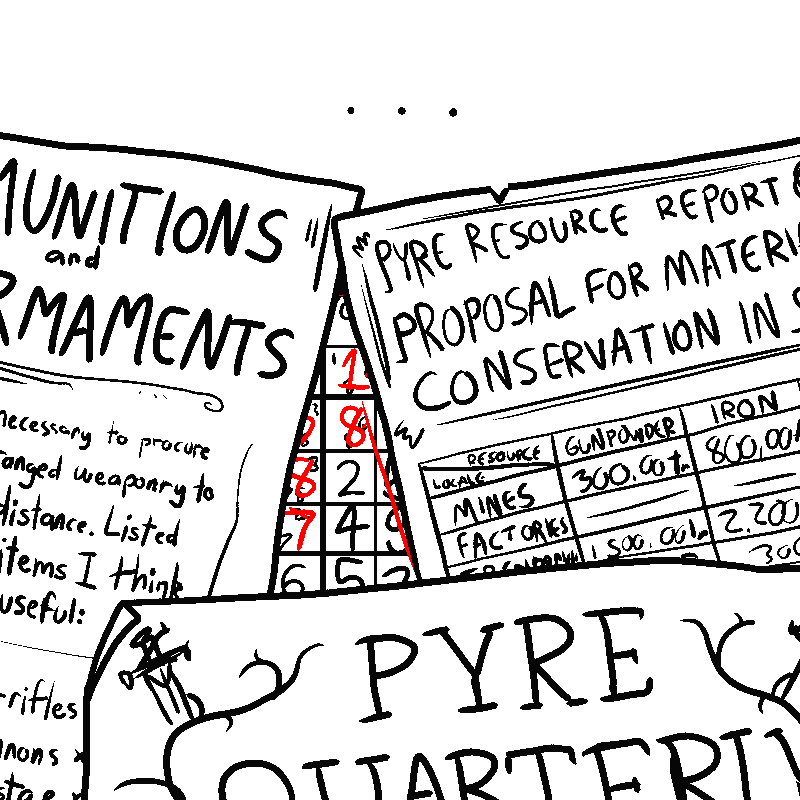 . . .
MUNITIONS
and
RMAMENTS
necessary to procure
ranged weaponry to
distance. Listed
items I think
useful:
rifles
nons
1
8
8 2
7 4 9
6 5 2
PYRE RESOURCE REPORT
PROPOSAL FOR MATERI
CONSERVATION IN S
RESOURCE GUNPOWDER IRON
LOCALE
MINES 300.00t 800,00
FACTORIES
1,500.00t 2.200
300
PYRE
QUARTERLY